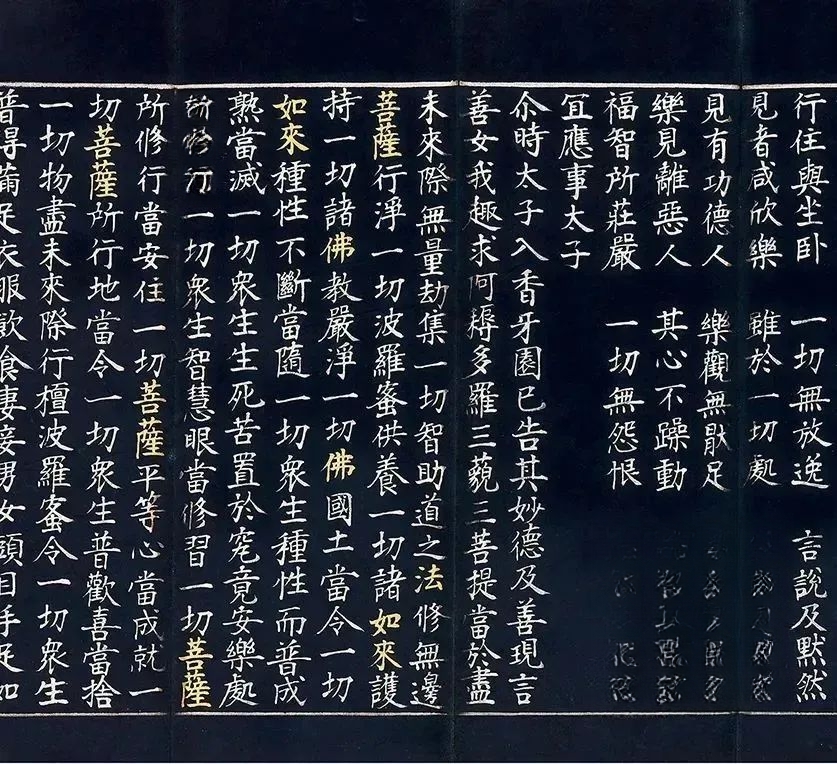 行住與坐卧 一切無放逸 言說及默然
見音咸欣樂 雖於一切處
見有功德人 樂觀無猒足
樂見離惡人 其心不躁動
福智所莊嚴 一切無怨恨
冝應事太子
尒時太子入香牙園已告其妙德及善現言
善女我趣求阿耨多羅三藐三菩提當於盡
未來際無量劫集一切智助道之法修無邊
菩薩行淨一切波羅蜜供養一切諸如來護
持一切諸佛教嚴淨一切佛國土當令一切
如來種性不斷當隨一切衆生種性而普成
熟當滅一切衆生生死苦置於究竟安樂處
一切衆生智慧眼當修習一切菩薩
所修行當安住一切菩薩平等心當成就一
切菩薩所行地當令一切衆生普歡喜當捨
一切物盡未來際行檀波羅蜜令一切衆生
普得滿足衣服飲食妻妾男女頭目手足如